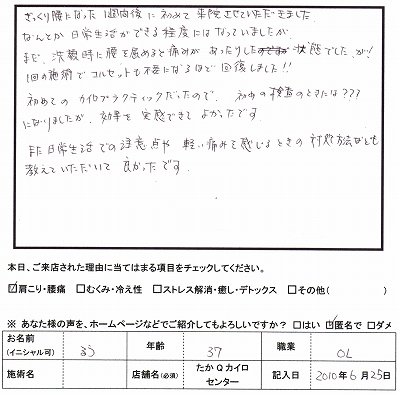 ぎっくり腰になった1週間後に初めて来院させていただきました。
なんとか日常生活ができる程度にはなっていましたが、
まだ、洗顔時に腰を屈めると痛みがあったりした状態でした、が!
1回の施術でコルセットも不要になるほど回復しました!!
初めてのカイロプラクティックだったので、初めの検査のときには???
になりましたが、効果を実感できてよかったです
また日常生活での注意点や軽い痛みを感じるときの対処方法なども
教えていただいて良かったです。
本日、ご来店された理由に当てはまる項目をチェックしてください。
☑肩こり・腰痛 □むくみ・冷え性 □ストレス解消・癒し・デトックス □その他( )
※ あなた様の声を、ホームページなどでご紹介してもよろしいですか? □はい ☑匿名で □ダメ
お名前 (イニシャル可) 年齢 37 職業 OL
施術名 店舗名(必須) たかQカイロセンター 記入日 2010年6月25日